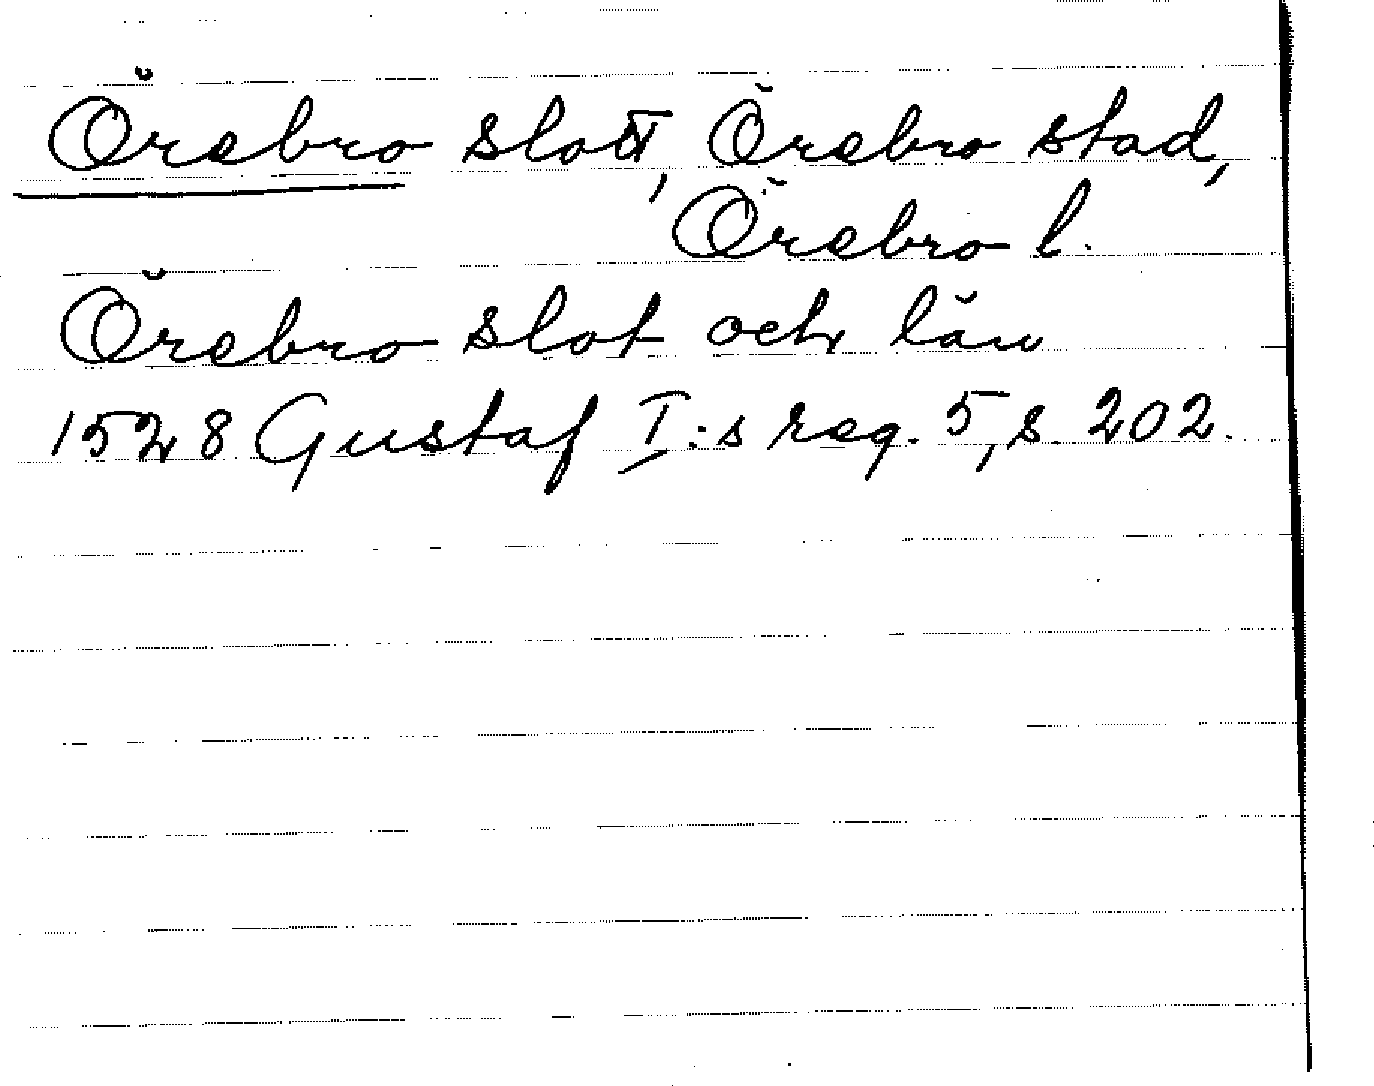 Örebro slott, Örebro stad,
Örebro l.
Örebro slot och län
1528 Gustaf I:s reg. 5, s. 202.